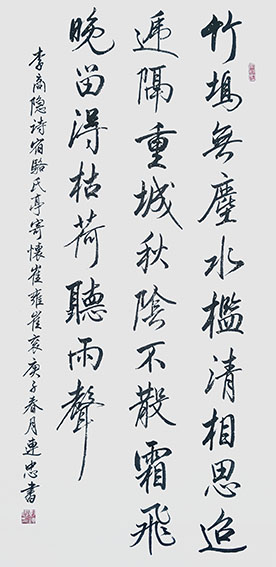 竹塢無塵水檻清相思迢
遞隔重城秋陰不散霜飛
晚留得枯荷聽雨聲
李商隐诗宿駱氏亭寄懷崔雍崔衮庚子春月連忠書